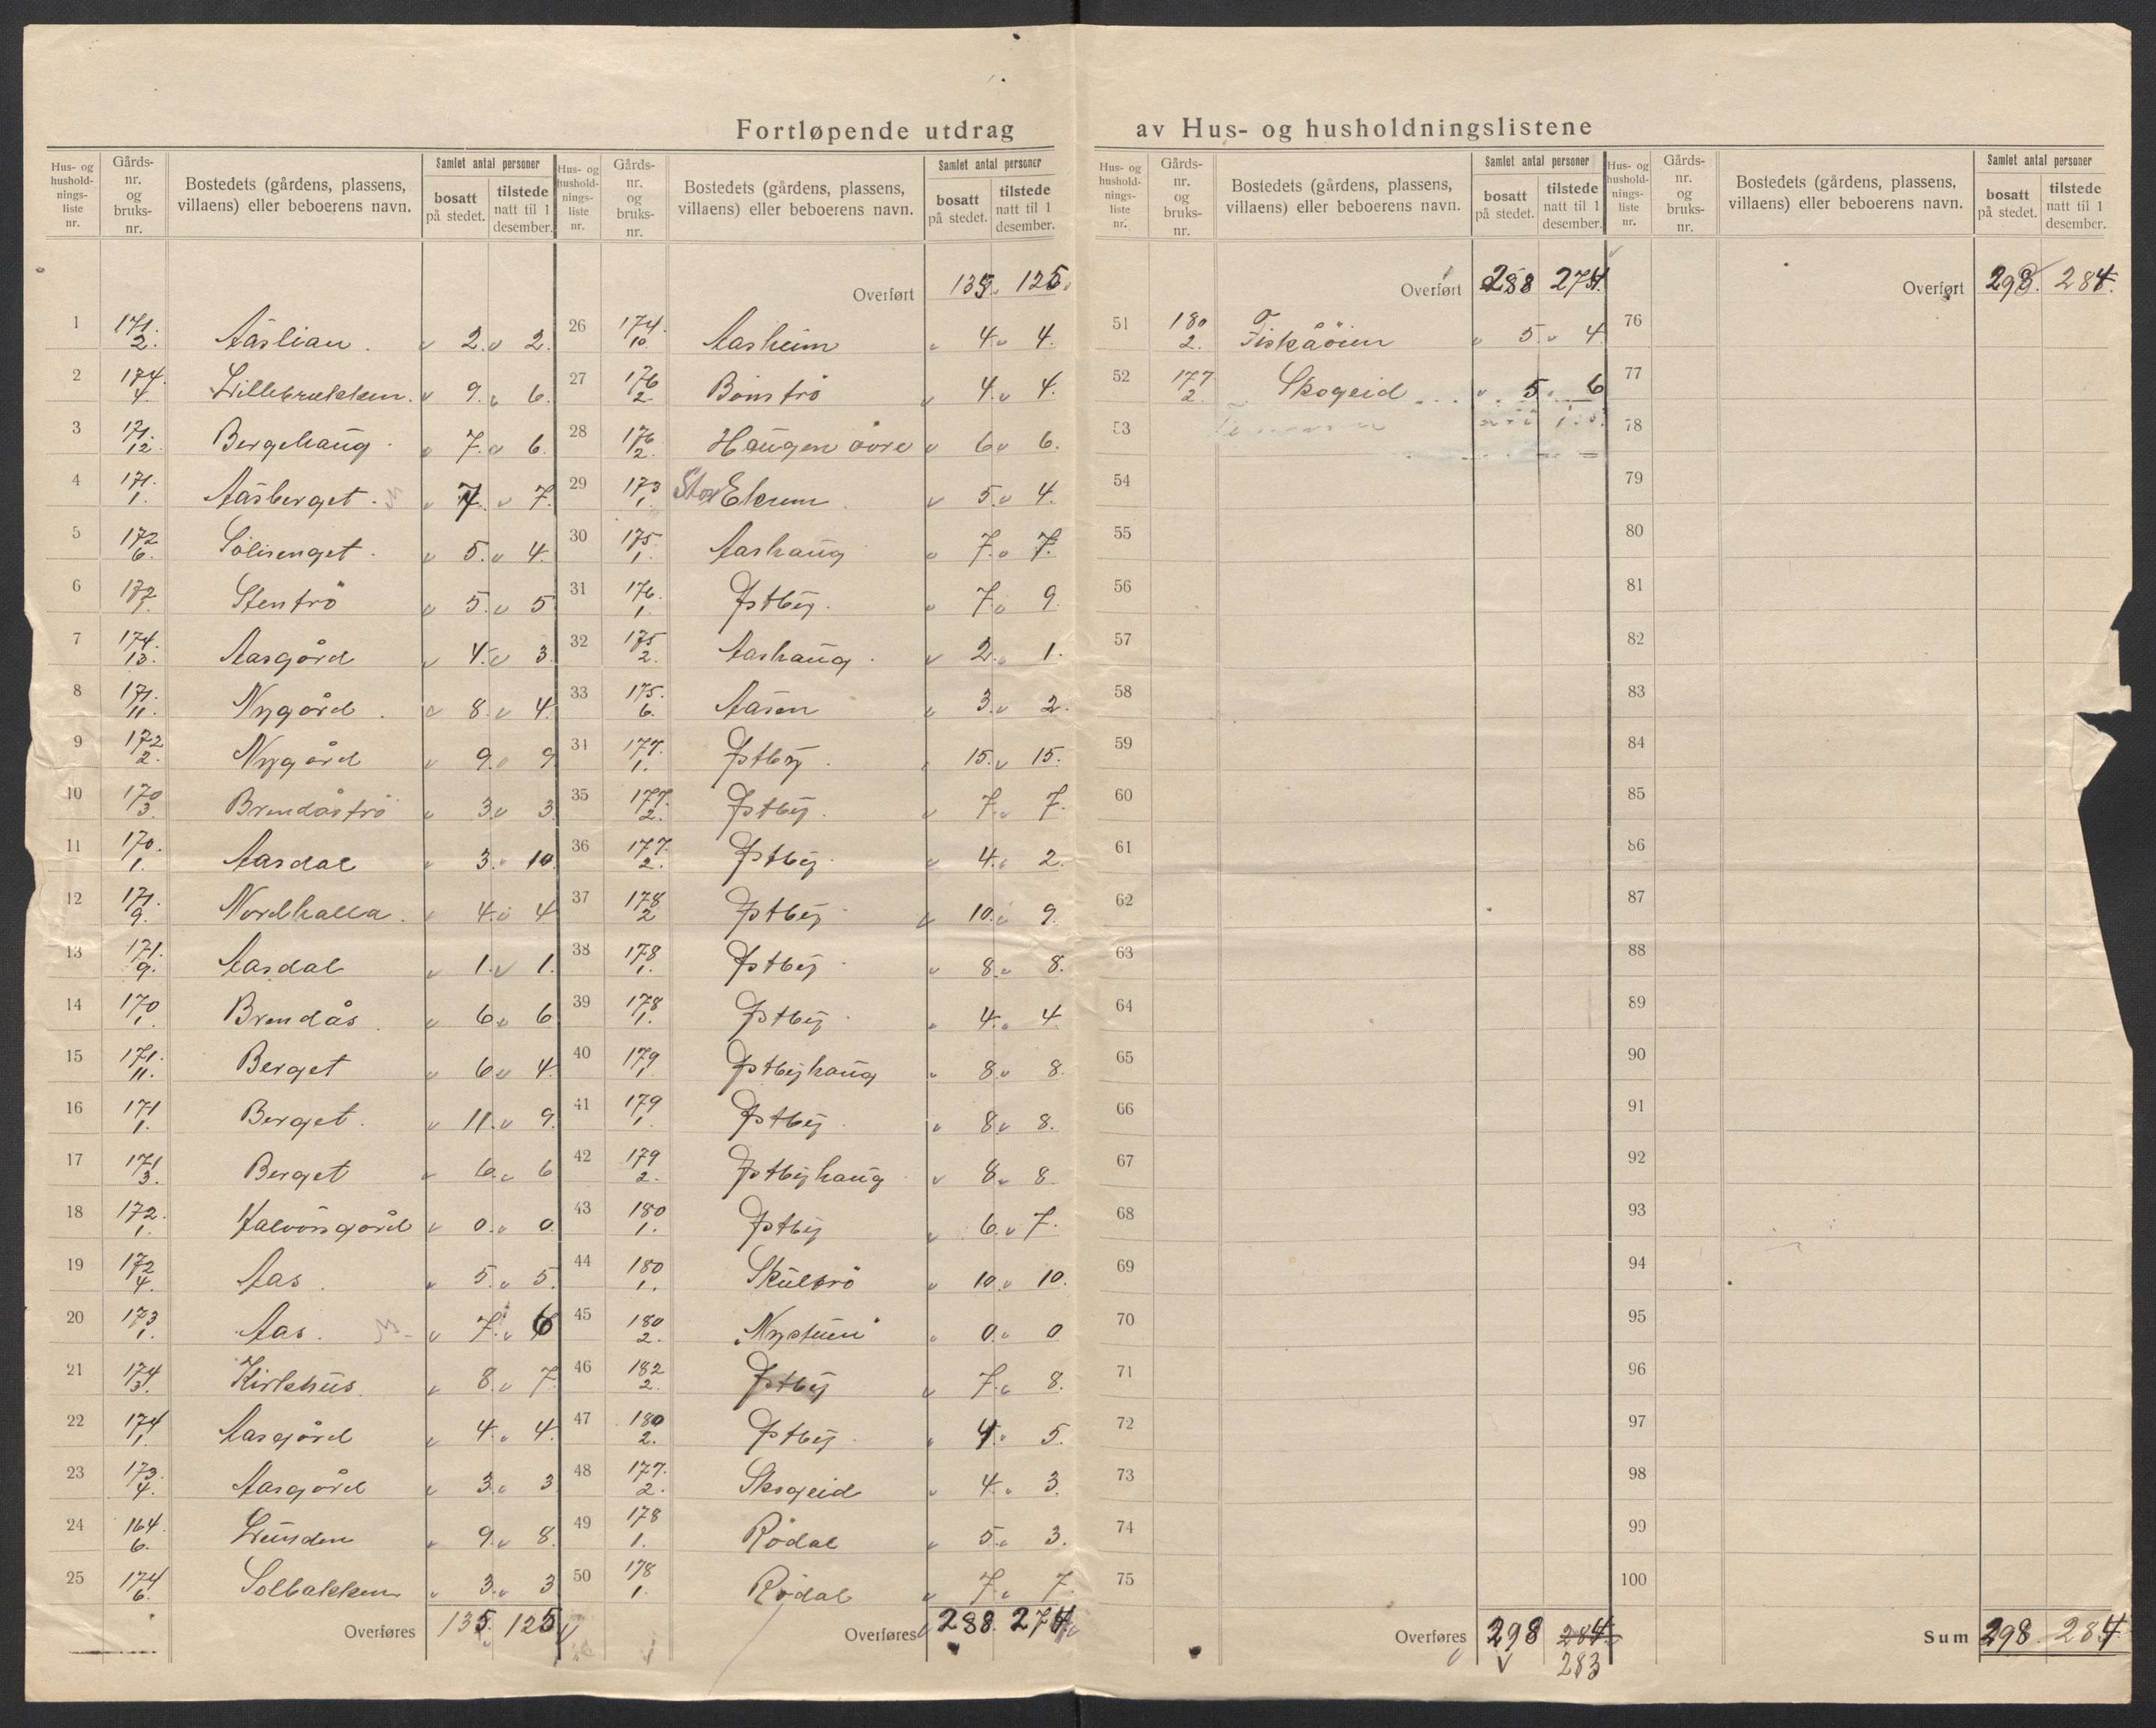 Fortløpende utdrag av Hus- og husholdningslistene
Hus- og husholdningsliste nr. Gårds-nr. og bruks-nr. Bostedets (gårdens, plassens, villaens) eller beboerens navn. Samlet antal personer bosatt på stedet. tilstede natt til 1 desember.
1 171. 2. Aaslian. 2. 2.
2 174. 4. Lillebrækken. 9. 6.
3 171. 12. Bergehaug. 7. 6.
4 171. 1. Aasberget. 7. 7.
5 172 6. Solisenget. 5. 4.
6 172 7. Stentrø 5. 5
7 174. 13. Aasgård 4. 3.
8 171. 11. Nygård. 8. 4.
9 172 2. Nygård 9. 9
10 170 3. Brendåstrø 3. 3
11 170. 1. Aasdal 3. 10.
12 171. 9. Nordhalla. 4. 4
13 171. 9. Aasdal 1. 1.
14 170 1. Brendås. 6. 6
15 171. 11. Berget 6. 4.
16 171 1. Berget. 11. 9.
17 171 3. Berget 6. 6
18 172. 1. Halvorsgård 0. 0.
19 172 4. Aas. 5. 5.
20 173 1. Aas. 7. 6
21 174 3. Kirkhus. 8. 7
22 174 1. Aasgård 4. 4.
23 173. 4. Aasgård 3. 3
24 164. 6. Lunden 9. 8.
25 174 6. Solbakken 3. 3
Overføres 135. 125
Hus- og husholdningsliste nr. Gårds-nr. og bruks-nr. Bostedets (gårdens, plassens, villaens) eller beboerens navn. Samlet antal personer bosatt på stedet. tilstede natt til 1 desember.
Overført 135. 125.
26 174. 10. Aasheim 4. 4.
27 176 2. Bønstrø 4. 4.
28 176. 2. Haugen øvre 6 6.
29 173 1. Stor Ekrem 5. 4.
30 175. 1. Aashaug 7. 7.
31 176. 1. Østby. 7. 9.
32 175 2. Aashaug. 2. 1.
33 175. 6. Aasen 3. 2.
34 177. 1. Østby. 15. 15.
35 177. 2. Østby. 7. 7.
36 177. 2. Østby. 4. 2.
37 178 2 Østby. 10. 9.
38 178 1. Østby. 8. 8.
39 178 1. Østby. 4. 4
40 179 1 Østbyhaug 8. 8.
41 179 1. Østby. 8. 8.
42 179 2. Østbyhaug. 8. 8.
43 180 1. Østby 6. 7.
44 180 1. Skulbrø 10. 10.
45 180 2. "Nystuen" 0. 0
46 182 2. Østby 7. 8.
47 180 2. Østby. 4. 5.
48 177. 2. Skogeid 4. 3.
49 178 1. Rødal 5. 3.
50 178 1. Rødal 7. 7.
Overføres 288. 274.
Hus- og husholdningsliste nr. Gårds-nr. og bruks-nr. Bostedets (gårdens, plassens, villaens) eller beboerens navn. Samlet antal personer bosatt på stedet. tilstede natt til 1 desember.
Overført 288 274.
51 180 2. Fiskåøien 5. 4.
52 177 2. Skogeid 5. 6
53
54
55
56
57
58
59
60
61
62
63
64
65
66
67
68
69
70
71
72
73
74
75
Overføres 298 284
283
Hus- og husholdningsliste nr. Gårds-nr. og bruks-nr. Bostedets (gårdens, plassens, villaens) eller beboerens navn. Samlet antal personer bosatt på stedet. tilstede natt til 1 desember.
Overført 298. 284.
76
77
78
79
80
81
82
83
84
85
86
87
88
89
90
91
92
93
94
95
96
97
98
99
100
Sum 298. 284